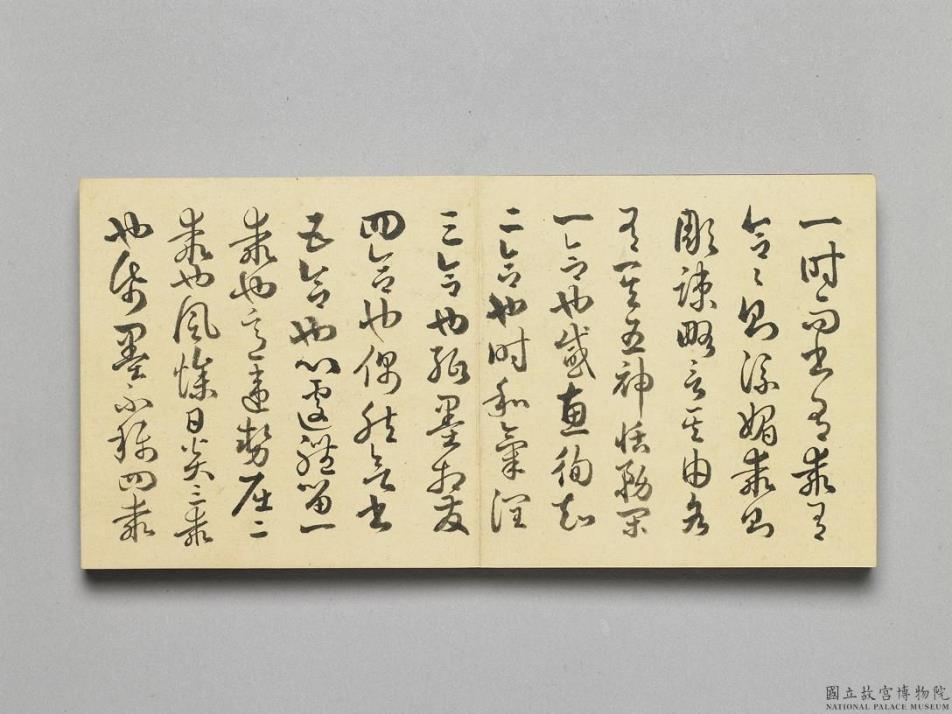 一時而書有乖有
合々則流媚乖則
彫疎略言其由各
有其五神怡務閑
一合也感惠徇知
二合也時和氣潤
三合也紙墨相發
四合也偶然欲書
五合也心遽體留一
乖也意違勢屈二
乖也風燥日炎三乖
也紙墨不稱四乖
國立故宮博物院
NATIONAL PALACE MUSEUM